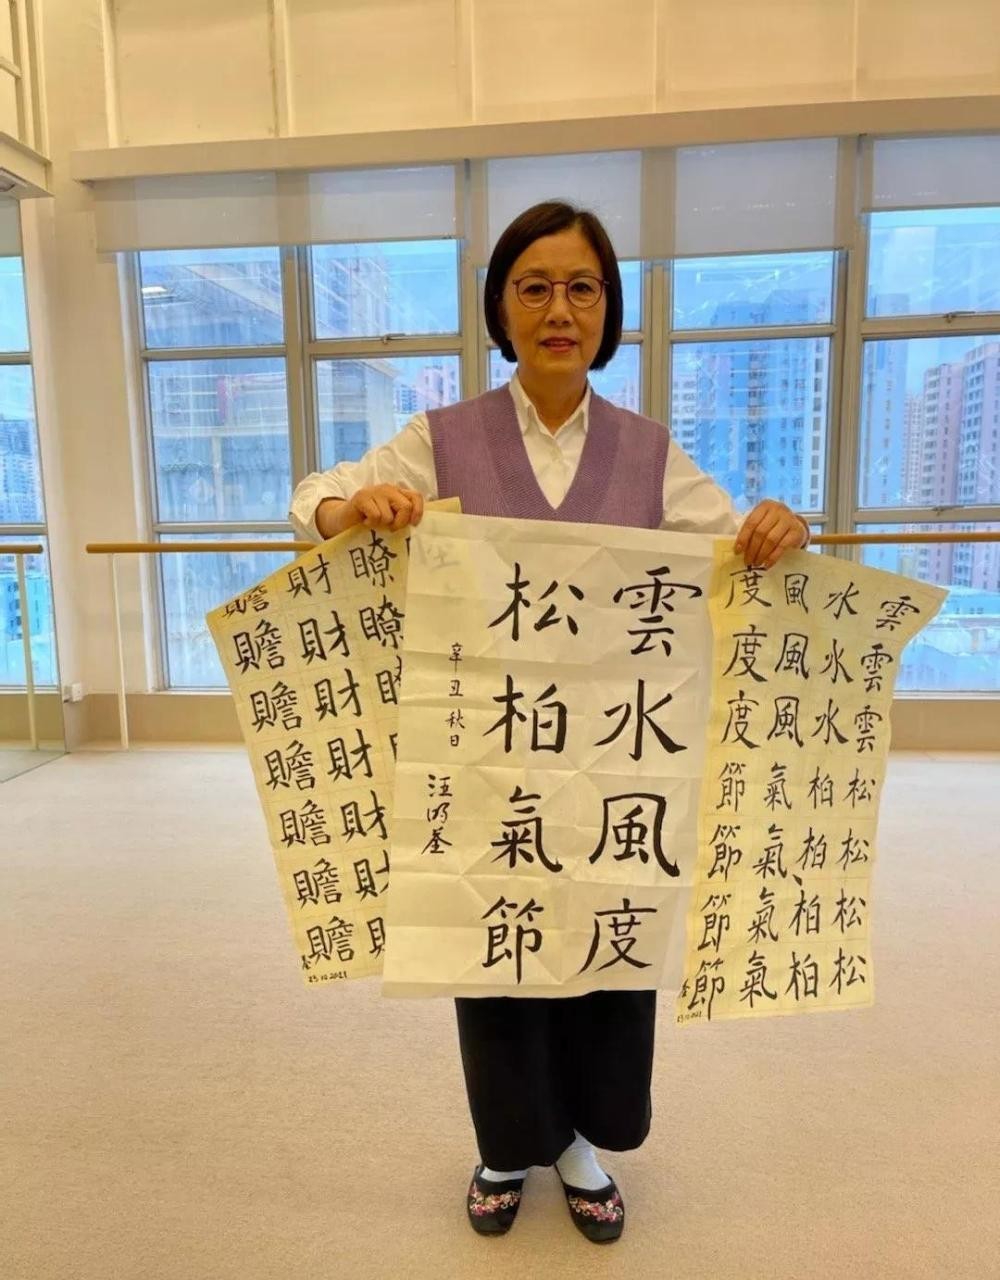 雲雲雲松松松松
水水水柏柏柏柏
風風風氣氣氣氣
度度度節節節節
雲水風度
松柏氣節
辛丑秋日
汪明荃
瞭瞭
財財財財財財
贍贍贍贍贍贍贍
23.10.2021